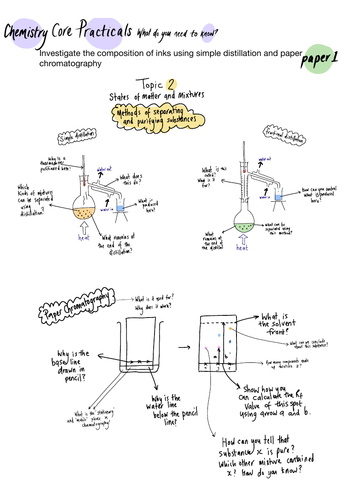 Chemistry Core Practicals What do you need to know?
Investigate the composition of inks using simple distillation and paper
chromatography
paper 1
Topic 2
States of matter and mixtures
Methods of separating
and purifying substances
Simple distillation
fractional distillation
Why is a
thermometer
positioned here?
water out
What does
this do?
Which
kinds of mixture
can be separated
using
distillation?
water in
What is
produced
here?
What remains at
the end of the
distillation?
heat
What is this
called?
What is it
for?
water out
How can you control
what is produced
here?
water in
What
remains at
the end of
the distillation?
What can be
separated using
this method?
heat
Paper Chromatography
What is it used for?
Why does it work?
Why is the
baseline
drawn in
pencil?
Why is the
water line
below the pencil
line?
What is the 'stationary'
and 'mobile' phase in
chromatography?
What is
the solvent
front?
What can we conclude
about this substance?
How many components made
up substance x?
Show how you
can calculate the Rf
value of this spot
using arrow a and b.
How can you tell that
substance x is pure?
Which other mixture contained
x? How do you know?